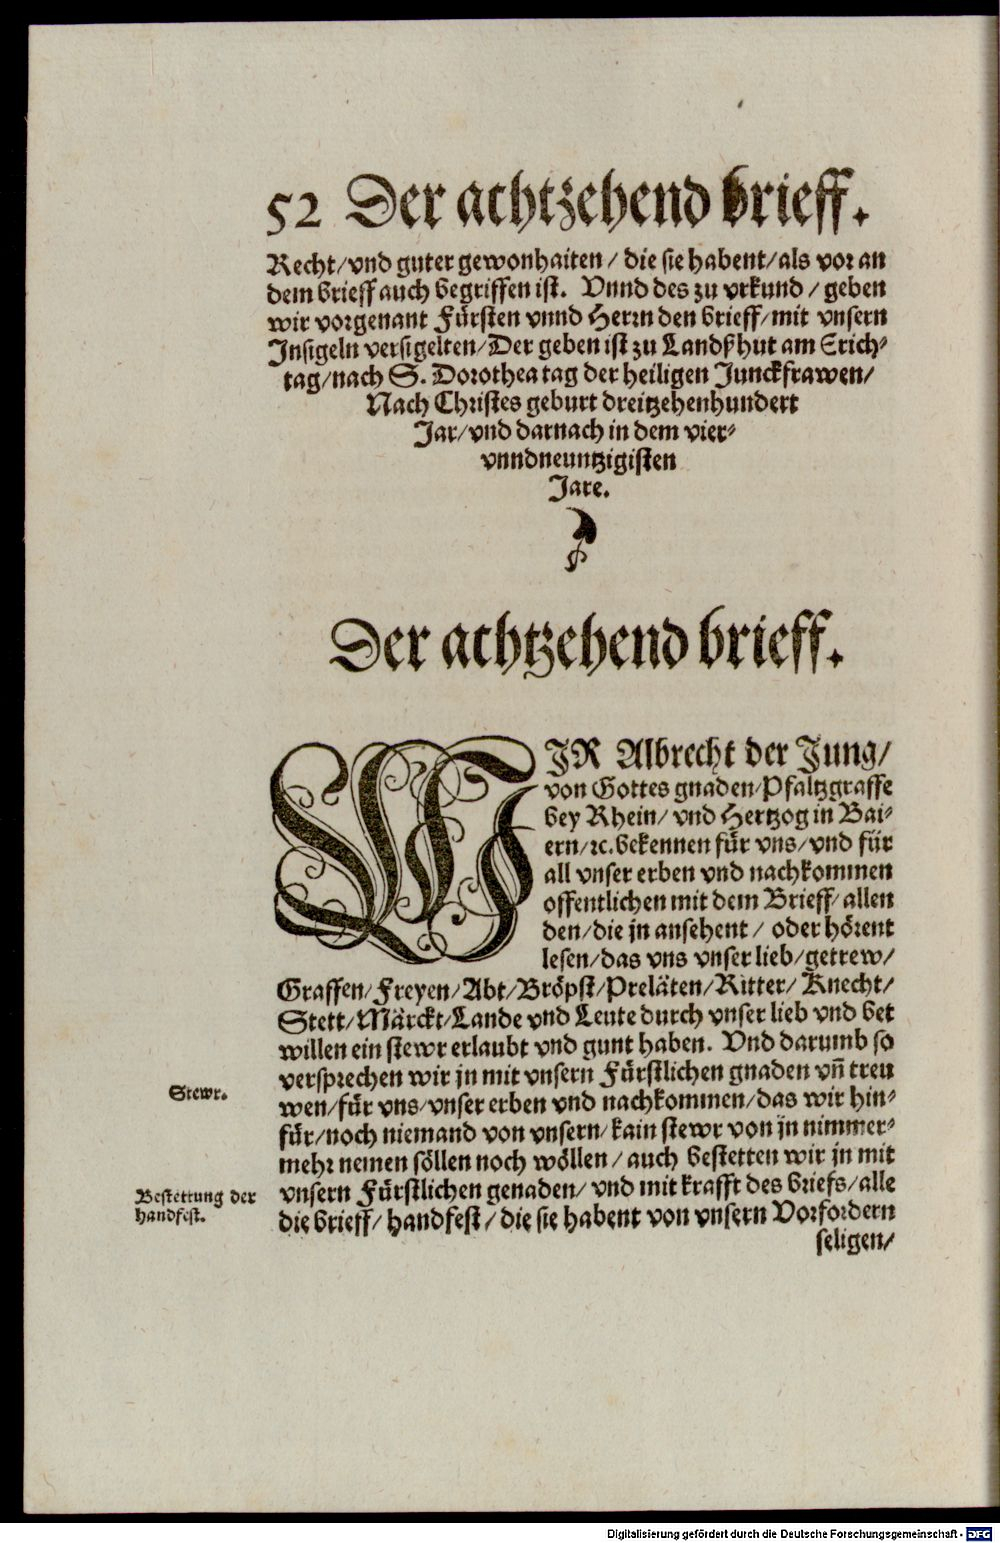 52 Der achtzehend brieff.
Recht/vnd guter gewonhaiten/ die sie habent/als vor an
dem brieff auch begriffen ist. Vnnd des zu vrkund/ geben
wir vorgenant Fürsten vnnd Herrn den brieff/mit vnsern
Insigeln versigelten/Der geben ist zu Landßhut am Erich-
tag/nach S. Dorothea tag der heiligen Junckfrawen/
Nach Christes geburt dreitzehenhundert
Jar/vnd darnach in dem vier-
vnndneuntzigisten
Jare.
Der achtzehend brieff.
WIR Albrecht der Jung/
von Gottes gnaden/Pfaltzgraffe
bey Rhein/ vnd Hertzog in Bai-
ern/ꝛc. bekennen für vns/vnd für
all vnser erben vnd nachkommen
offentlichen mit dem Brieff/allen
den/die jn ansehent/ oder hörent
lesen/das vns vnser lieb/getrew/
Graffen/Freyen/Abt/Bröpst/Preläten/Ritter/ Knecht/
Stett/Märckt/Lande vnd Leute durch vnser lieb vnd bet
willen ein stewr erlaubt vnd gunt haben. Vnd darumb so
versprechen wir jn mit vnsern Fürstlichen gnaden vñ treu
Stewr.
wen/für vns/vnser erben vnd nachkommen/das wir hin-
für/noch niemand von vnsern/kain stewr von jn nimmer-
mehr nemen söllen noch wöllen/ auch bestetten wir jn mit
Bestettung der
handfest.
vnsern Fürstlichen genaden/ vnd mit krafft des briefs/alle
die brieff/ handfest/ die sie habent von vnsern Vorfordern
seligen/
Digitalisierung gefördert durch die Deutsche Forschungsgemeinschaft - DFG